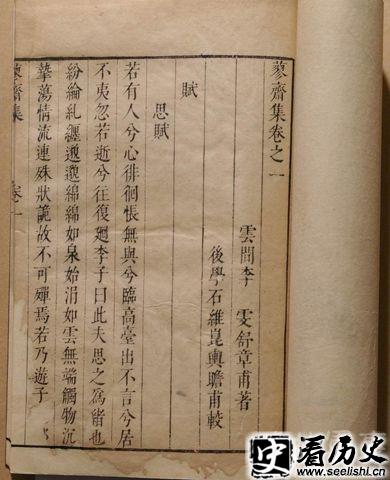 蓼齋集卷之一
雲間李　雯舒章甫著
後學石維崑輿瞻甫較
賦
思賦
若有人兮心徘徊悵無與兮臨高臺出不言兮居
不夷忽若逝兮往復廻李子曰此夫思之爲緒也
紛綸糺纏邈邈綿綿如泉始涓如雲無端觸物沉
摯蕩情流連殊狀詭故不可殫焉若乃遊子
蓼齋集
卷一
史
看历史
www.seelishi.cn